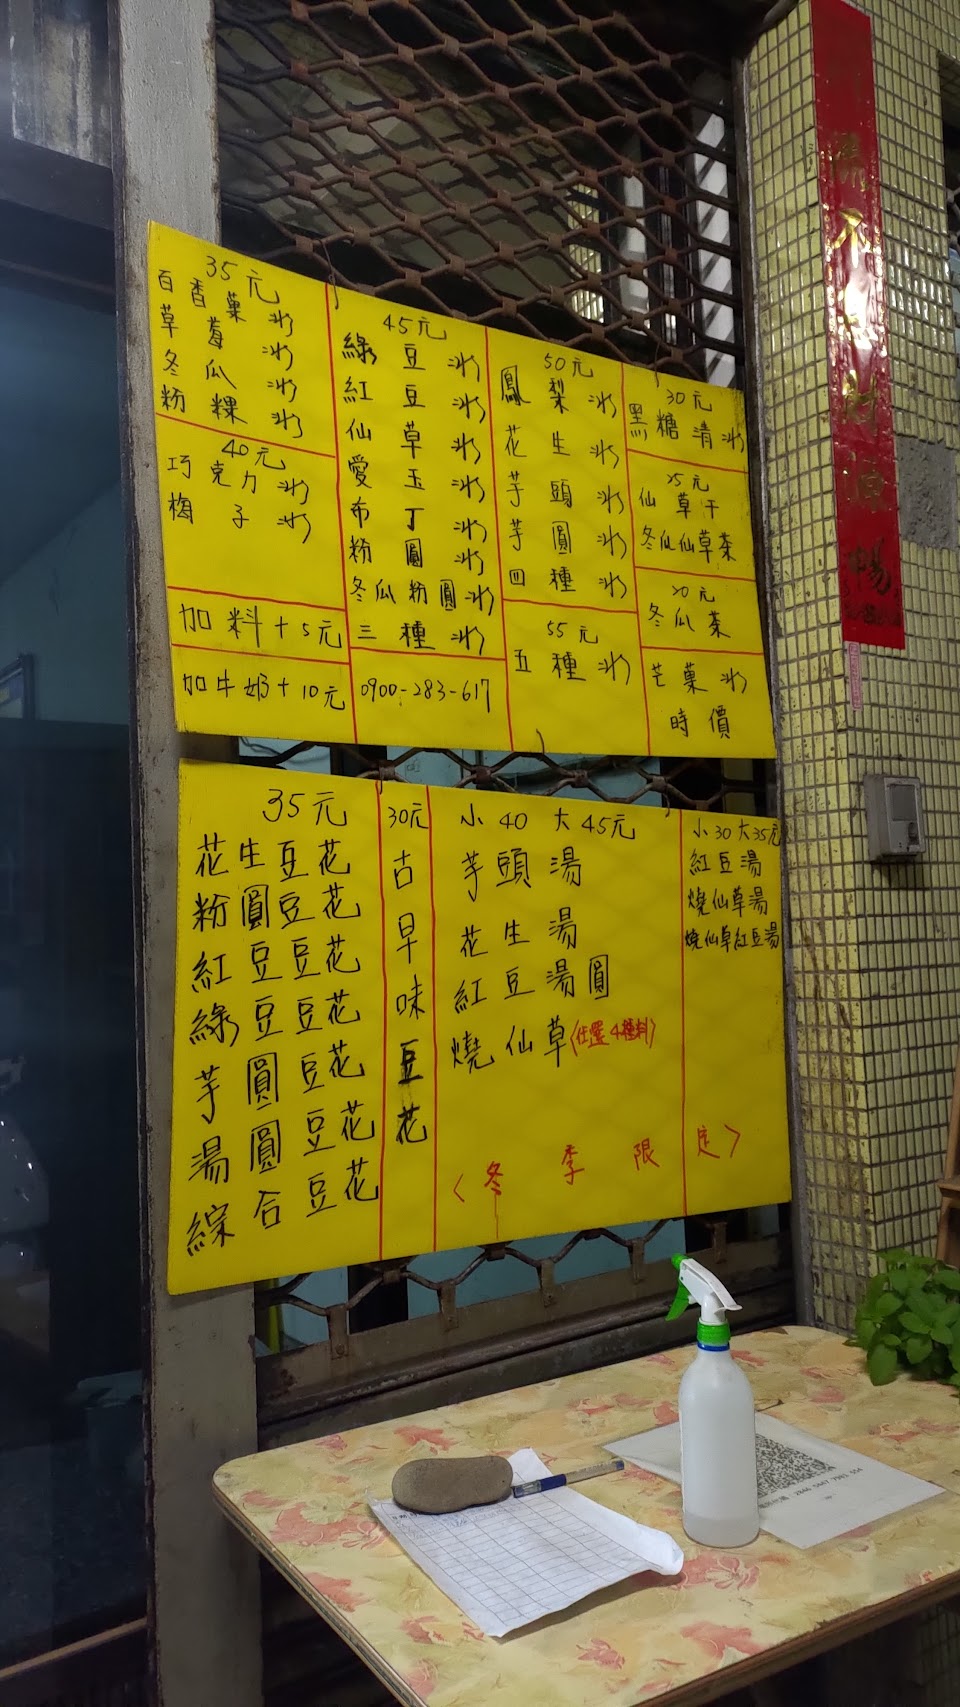 35元
百香菓冰
草莓冰
冬瓜冰
粉粿冰
40元
巧克力冰
梅子冰
加料+5元
加牛奶+10元
45元
綠豆冰
紅豆冰
仙草冰
愛玉冰
布丁冰
粉圓冰
冬瓜粉圓冰
三種冰
0900-283-617
50元
鳳梨冰
花生冰
芋頭冰
芋圓冰
四種冰
55元
五種冰
30元
黑糖清冰
25元
仙草干
冬瓜仙草茶
20元
冬瓜茶
芒菓冰
時價
35元
花生豆花
粉圓豆花
紅豆豆花
綠豆豆花
芋圓豆花
湯圓豆花
綜合豆花
30元
古早味豆花
小40 大45元
芋頭湯
花生湯
紅豆湯圓
燒仙草(任選4種料)
小30大35元
紅豆湯
燒仙草湯
燒仙草紅豆湯
<冬季限定>